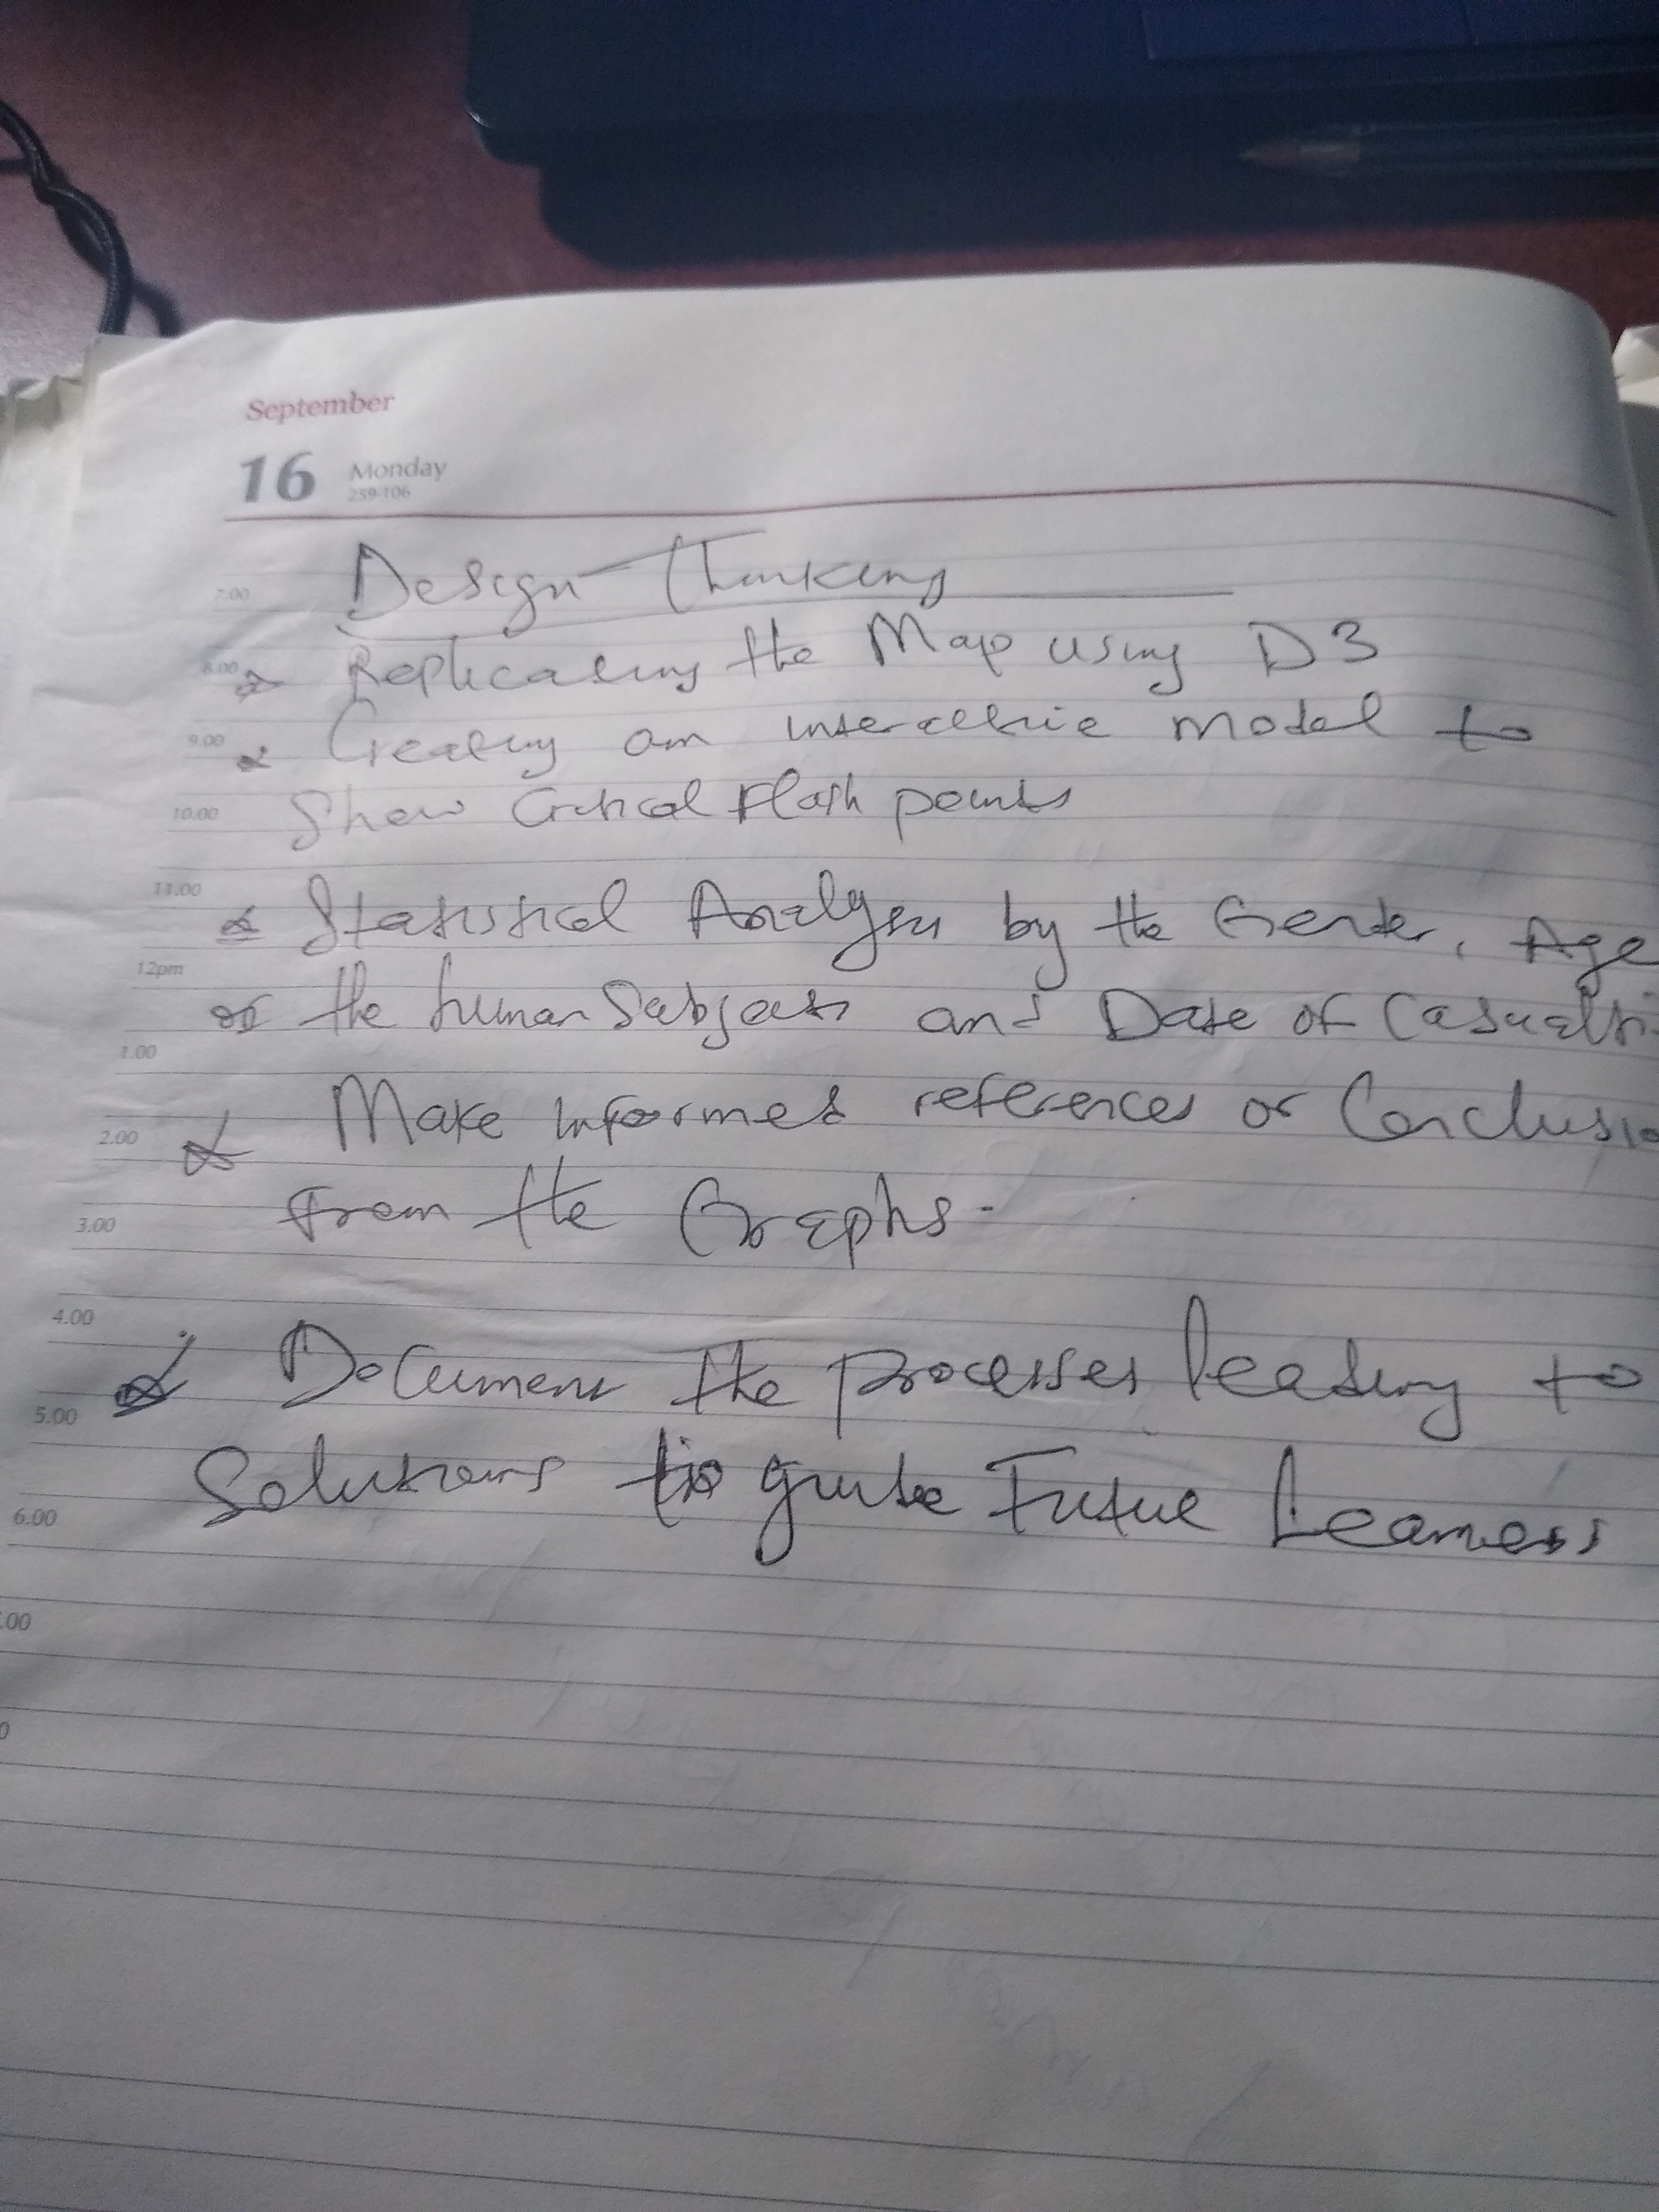 September
16 Monday
259-106
7.00 Design Thinking
8.00 Replicating the Map using D3
9.00 Creating an interactive model to
10.00 Show Critical Flash points
11.00 Statistical Analysis by the Gender, Age
12pm of the human Subjects and Date of Casualti
1.00
2.00 Make informed references or Conclusio
3.00 From the Graphs.
4.00
5.00 Document the processes leading to
Solutions to guide Future Learners
6.00
.00
0